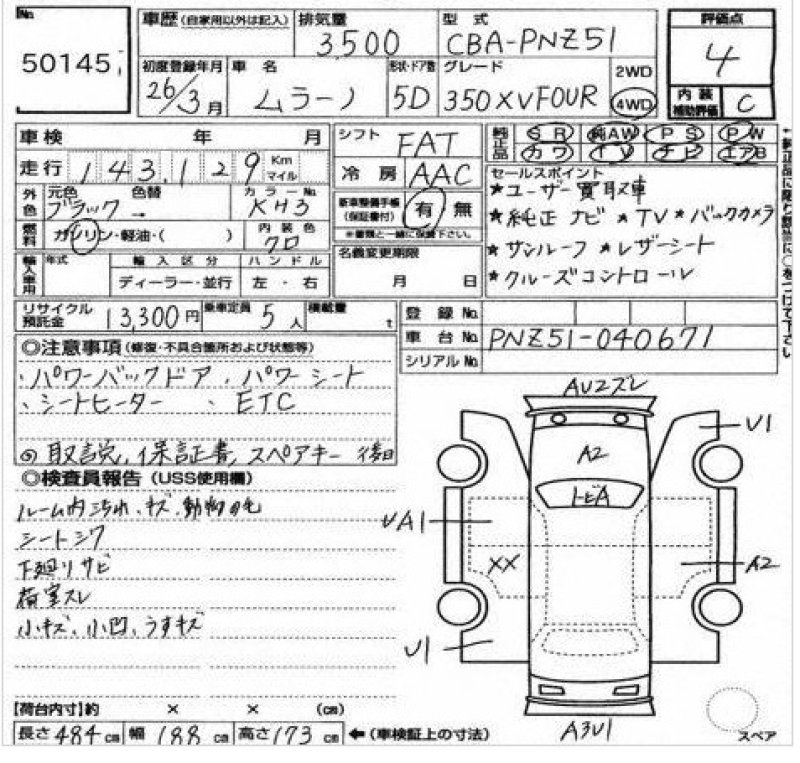 No. 50145
車歴 (自家用以外は記入) 排気量 3,500 型式 CBA-PNZ51 評価点 4
初度登録年月 26/3月 車名 ムラーノ 形状・ドア数 5D グレード 350XVFOUR 2WD 4WD 内装補助評価 C
車検 年 月 シフト FAT 純正品 SR 純AW PS PW
カワ TV ナビ エアB
走行 143,129 Km マイル 冷房 AAC セールスポイント
外色 元色 ブラック 色替 → カラーNo. KH3 新車整備手帳 (保証書付) 有 無
※書類と一緒に保管下さい。
★ユーザー買取車
★純正ナビ★TV★バックカメラ
★サンルーフ★レザーシート
★クルーズコントロール
燃料 ガソリン・軽油・( ) 内装色 クロ 名義変更期限 月 日
輸入車用 年式 輸入区分 ディーラー・並行 ハンドル 左・右
リサイクル預託金 13,300円 乗車定員 5人 積載量 t
登録No.
車台No. PNZ51-040671
シリアルNo.
◎注意事項 (修復・不具合箇所および状態等)
・パワーバックドア、パワーシート
・シートヒーター 、ETC
取説、保証書、スペアキー 後日
◎検査員報告 (USS使用欄)
ルーム内汚れ、キズ、動物の毛
シートシワ
下廻りサビ
荷室スレ
小キズ、小凹、うすキズ
【荷台内寸】約 × × (cm)
長さ484cm 幅188cm 高さ173cm ←(車検証上の寸法)
AU2ズレ
U1
A2
トビA
UA1
XX
A2
U1
A3U1
スペア